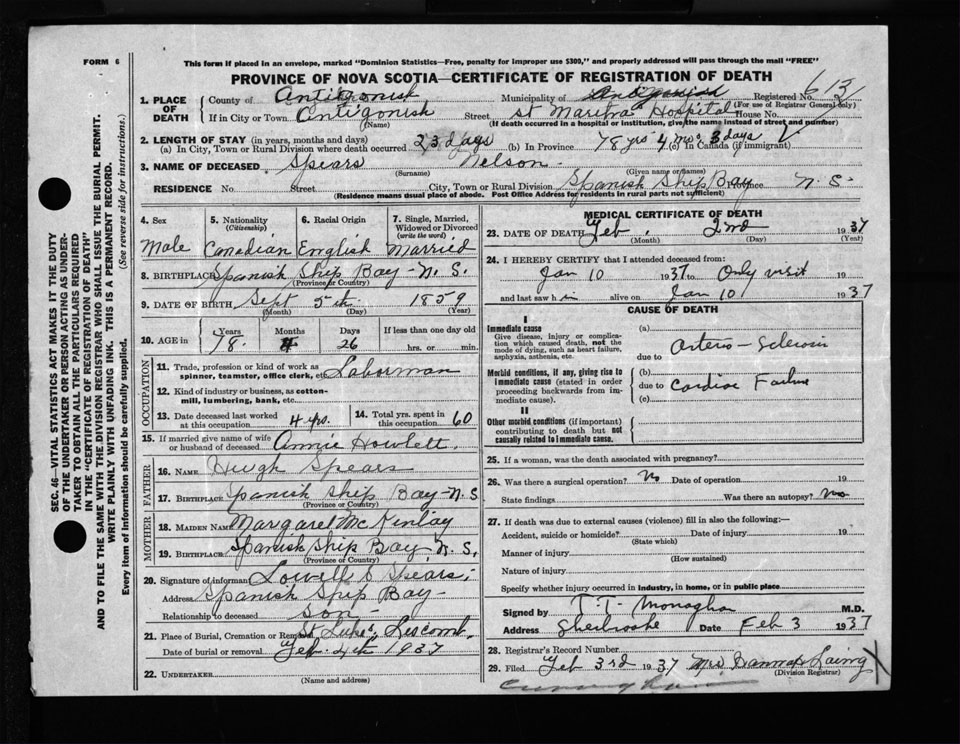 FORM 6
This form if placed in an envelope, marked "Dominion Statistics—Free, penalty for improper use $300," and properly addressed will pass through the mail "FREE"
PROVINCE OF NOVA SCOTIA—CERTIFICATE OF REGISTRATION OF DEATH
SEC. 46—VITAL STATISTICS ACT MAKES IT THE DUTY
OF THE UNDERTAKER OR PERSON ACTING AS UNDER-
TAKER TO OBTAIN ALL THE PARTICULARS REQUIRED
IN THE "CERTIFICATE OF REGISTRATION OF DEATH"
AND TO FILE THE SAME WITH THE DIVISION REGISTRAR WHO SHALL ISSUE THE BURIAL PERMIT.
WRITE PLAINLY WITH UNFADING INK. THIS IS A PERMANENT RECORD.
Every item of information should be carefully supplied. (See reverse side for instructions.)
1. PLACE OF DEATH County of Antigonish Municipality of Antigonish Registered No. 613
(For use of Registrar General only)
If in City or Town Antigonish Street St Martha Hospital House No.
(Name) (If death occurred in a hospital or institution, give the name instead of street and number)
2. LENGTH OF STAY (in years, months and days)
(a) In City, Town or Rural Division where death occurred 23 days (b) In Province 78 yrs 4 mo 3 days (c) In Canada (if immigrant)
3. NAME OF DECEASED Spears Nelson
(Surname) (Given name or names)
RESIDENCE No. Street City, Town or Rural Division Spanish Ship Bay Province N. S.
(Residence means usual place of abode. Post Office Address for residents in rural parts not sufficient)
4. Sex 5. Nationality (Citizenship) 6. Racial Origin 7. Single, Married, Widowed or Divorced (write the word)
Male Canadian English Married
8. BIRTHPLACE Spanish Ship Bay - N. S.
(Province or Country)
9. DATE OF BIRTH Sept 5th 1859
(Month) (Day) (Year)
10. AGE in Years Months Days If less than one day old
78 4 26 hrs. or min.
OCCUPATION
11. Trade, profession or kind of work as spinner, teamster, office clerk, etc. Laborman
12. Kind of industry or business, as cotton-mill, lumbering, bank, etc.
13. Date deceased last worked at this occupation 4 yrs. 14. Total yrs. spent in this occupation 60
15. If married give name of wife or husband of deceased Annie Howlett
FATHER
16. NAME Hugh Spears
17. BIRTHPLACE Spanish Ship Bay - N. S
(Province or Country)
MOTHER
18. MAIDEN NAME Margaret McKinlay
19. BIRTHPLACE Spanish Ship Bay - N. S.
(Province or Country)
20. Signature of informant Lowell S Spears
Address Spanish Ship Bay -
Relationship to deceased Son -
21. Place of Burial, Cremation or Removal St Lukes, Liscomb.
Date of burial or removal Feb. 4th 1937
22. UNDERTAKER
(Name and address)
MEDICAL CERTIFICATE OF DEATH
23. DATE OF DEATH Feb. 2nd 1937
(Month) (Day) (Year)
24. I HEREBY CERTIFY that I attended deceased from:
Jan 10 1937 to Only visit 19
and last saw him alive on Jan 10 1937
CAUSE OF DEATH
I
Immediate cause
Give disease, injury or complication which caused death, not the mode of dying, such as heart failure, asphyxia, asthenia, etc.
(a) Arterio - Sclerosis
due to
Morbid conditions, if any, giving rise to immediate cause (stated in order proceeding backwards from immediate cause).
(b)
due to Cardiac Failure
(c)
II
Other morbid conditions (if important) contributing to death but not causally related to immediate cause.
25. If a woman, was the death associated with pregnancy?
26. Was there a surgical operation? No Date of operation 19
State findings Was there an autopsy? No
27. If death was due to external causes (violence) fill in also the following:—
Accident, suicide or homicide? Date of injury 19
(State which)
Manner of injury
(How sustained)
Nature of injury
Specify whether injury occurred in industry, in home, or in public place
Signed by T. T. Monaghan M.D.
Address Sherbrooke Date Feb 3 1937
28. Registrar's Record Number
29. Filed Feb 3rd 1937 Mrs Hannah Laing X
(Division Registrar)